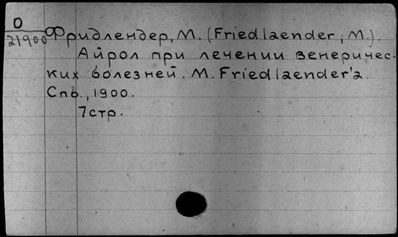 О
21900
Фридлендер, М. (Friedlaender, M.).
Айрол при лечении венеричес-
ких болезней. M. Friedlaender'а
Спб., 1900.
7стр.